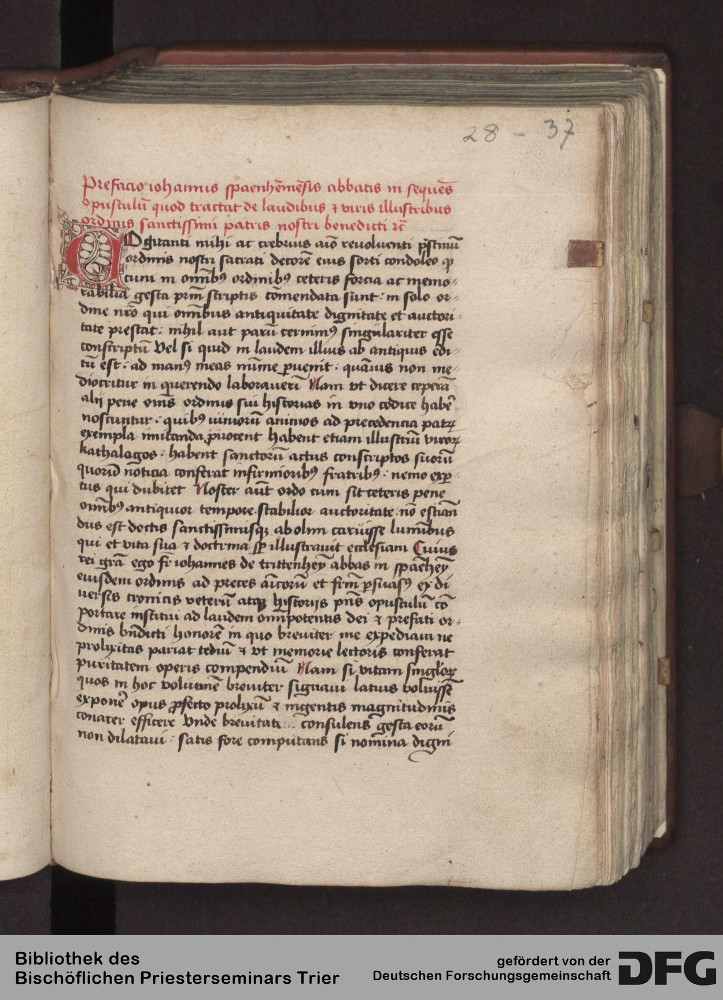 28 - 37
Prefacio iohannis spaenhemēsis abbatis in sequēs
opusculū quod tractat de laudibus ⁊ viris illustribus
ordinis sanctissimi patris nostri benedicti ⁊c̄
Cogitanti mihi ac crebrius aīo reuoluenti pn̄tiuū
ordinis nostri sacrati decorē eius sorti condoleo qꝫ
cum in om̄ibꝫ ordinibꝫ ceteris forcia ac memo-
rabilia gesta prim̄ scriptis cōmendata sunt : in solo or-
dine nr̄o qui omnibus antiquitate dignitate et auctori
tate prestat : nihil aut parū cernimꝫ singulariter esse
conscriptū Vel si quid in laudem illius ab antiquis edi-
tū est : ad manꝫ meas mīme ꝑuenit : quāuis non me-
diocriter in querendo laborauerī Nam vt dicere ceperā
alij pene om̄s ordinis sui historias in vno codice habē
noscuntur : quibꝫ iuniorū animos ad precedencia patꝝ
exempla imitanda ꝓuocent habent etiam illustriū viroꝝ
kathalogos : habent sanctorū actus conscriptos suorū
quorū noticia conferat infirmioribꝫ fratribꝫ : nemo exꝑ
tus qui dubitet Noster aūt ordo cum sit ceteris pene
om̄ibꝫ antiquior tempore stabilior auctoritate nō estian
dus est doctis sanctissimisqꝫ ab olim caruisse luminibus
qui et vita sua ⁊ doctrina sꝑ illustrauit ecclesiam Cuius
rei grā ego fr̄ iohannes de trittenheȳ abbas in spaēheȳ
eiusdem ordinis ad preces amicorū et frm̄ ꝑsuasꝫ ex di
uersis cronicis veterū atqꝫ historijs pn̄s opusculū cō
portare institui ad laudem om̄ipotentis dei ⁊ prefati or-
dinis bn̄dicti honorē in quo breuiter me expediam ne
prolixitas pariat tediū ⁊ vt memorie lectoris conferat
puritatem operis compendiū Nam si vitam singloꝝ
quos in hoc volumē breuiter signaui latius voluissē
exponē opus ꝓfecto prolixū ⁊ ingentis magnitudinis
conarer efficere Vnde breuitati consulens gesta eorū
non dilataui : satis fore computans si nomina digni
Bibliothek des
Bischöflichen Priesterseminars Trier
gefördert von der
Deutschen Forschungsgemeinschaft
DFG